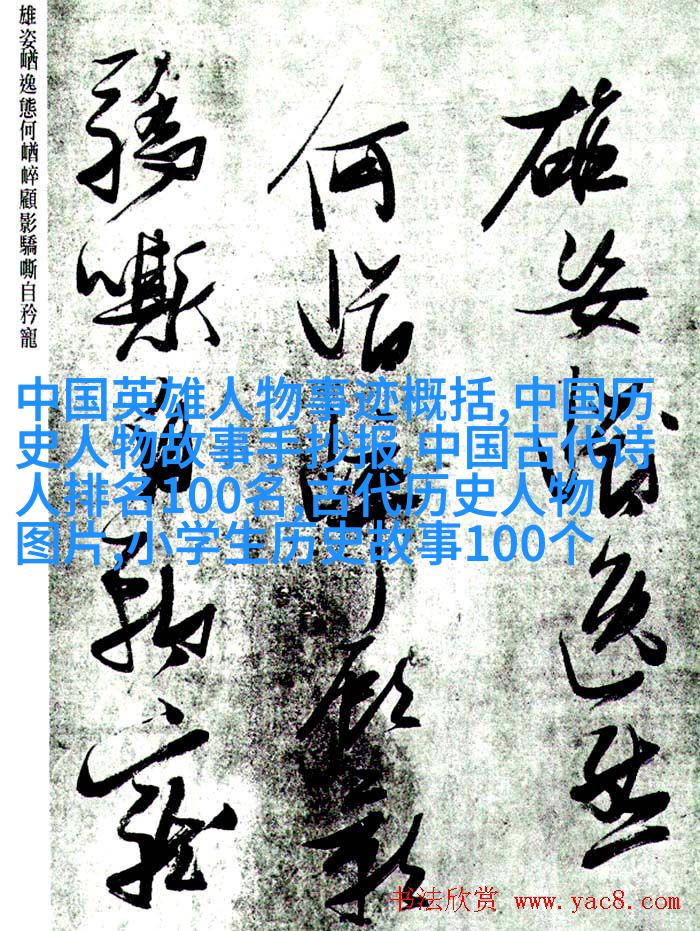 雄姿崷逸態
何崷崒顧影
驕嘶自矜寵
雄姿崷逸態何崷崒顧影驕嘶自矜寵
中国英雄人物事迹概括,中国历
史人物故事手抄报,中国古代诗
人排名100名,古代历史人物
图片,小学生历史故事100个
书法欣赏 www.yac8.com